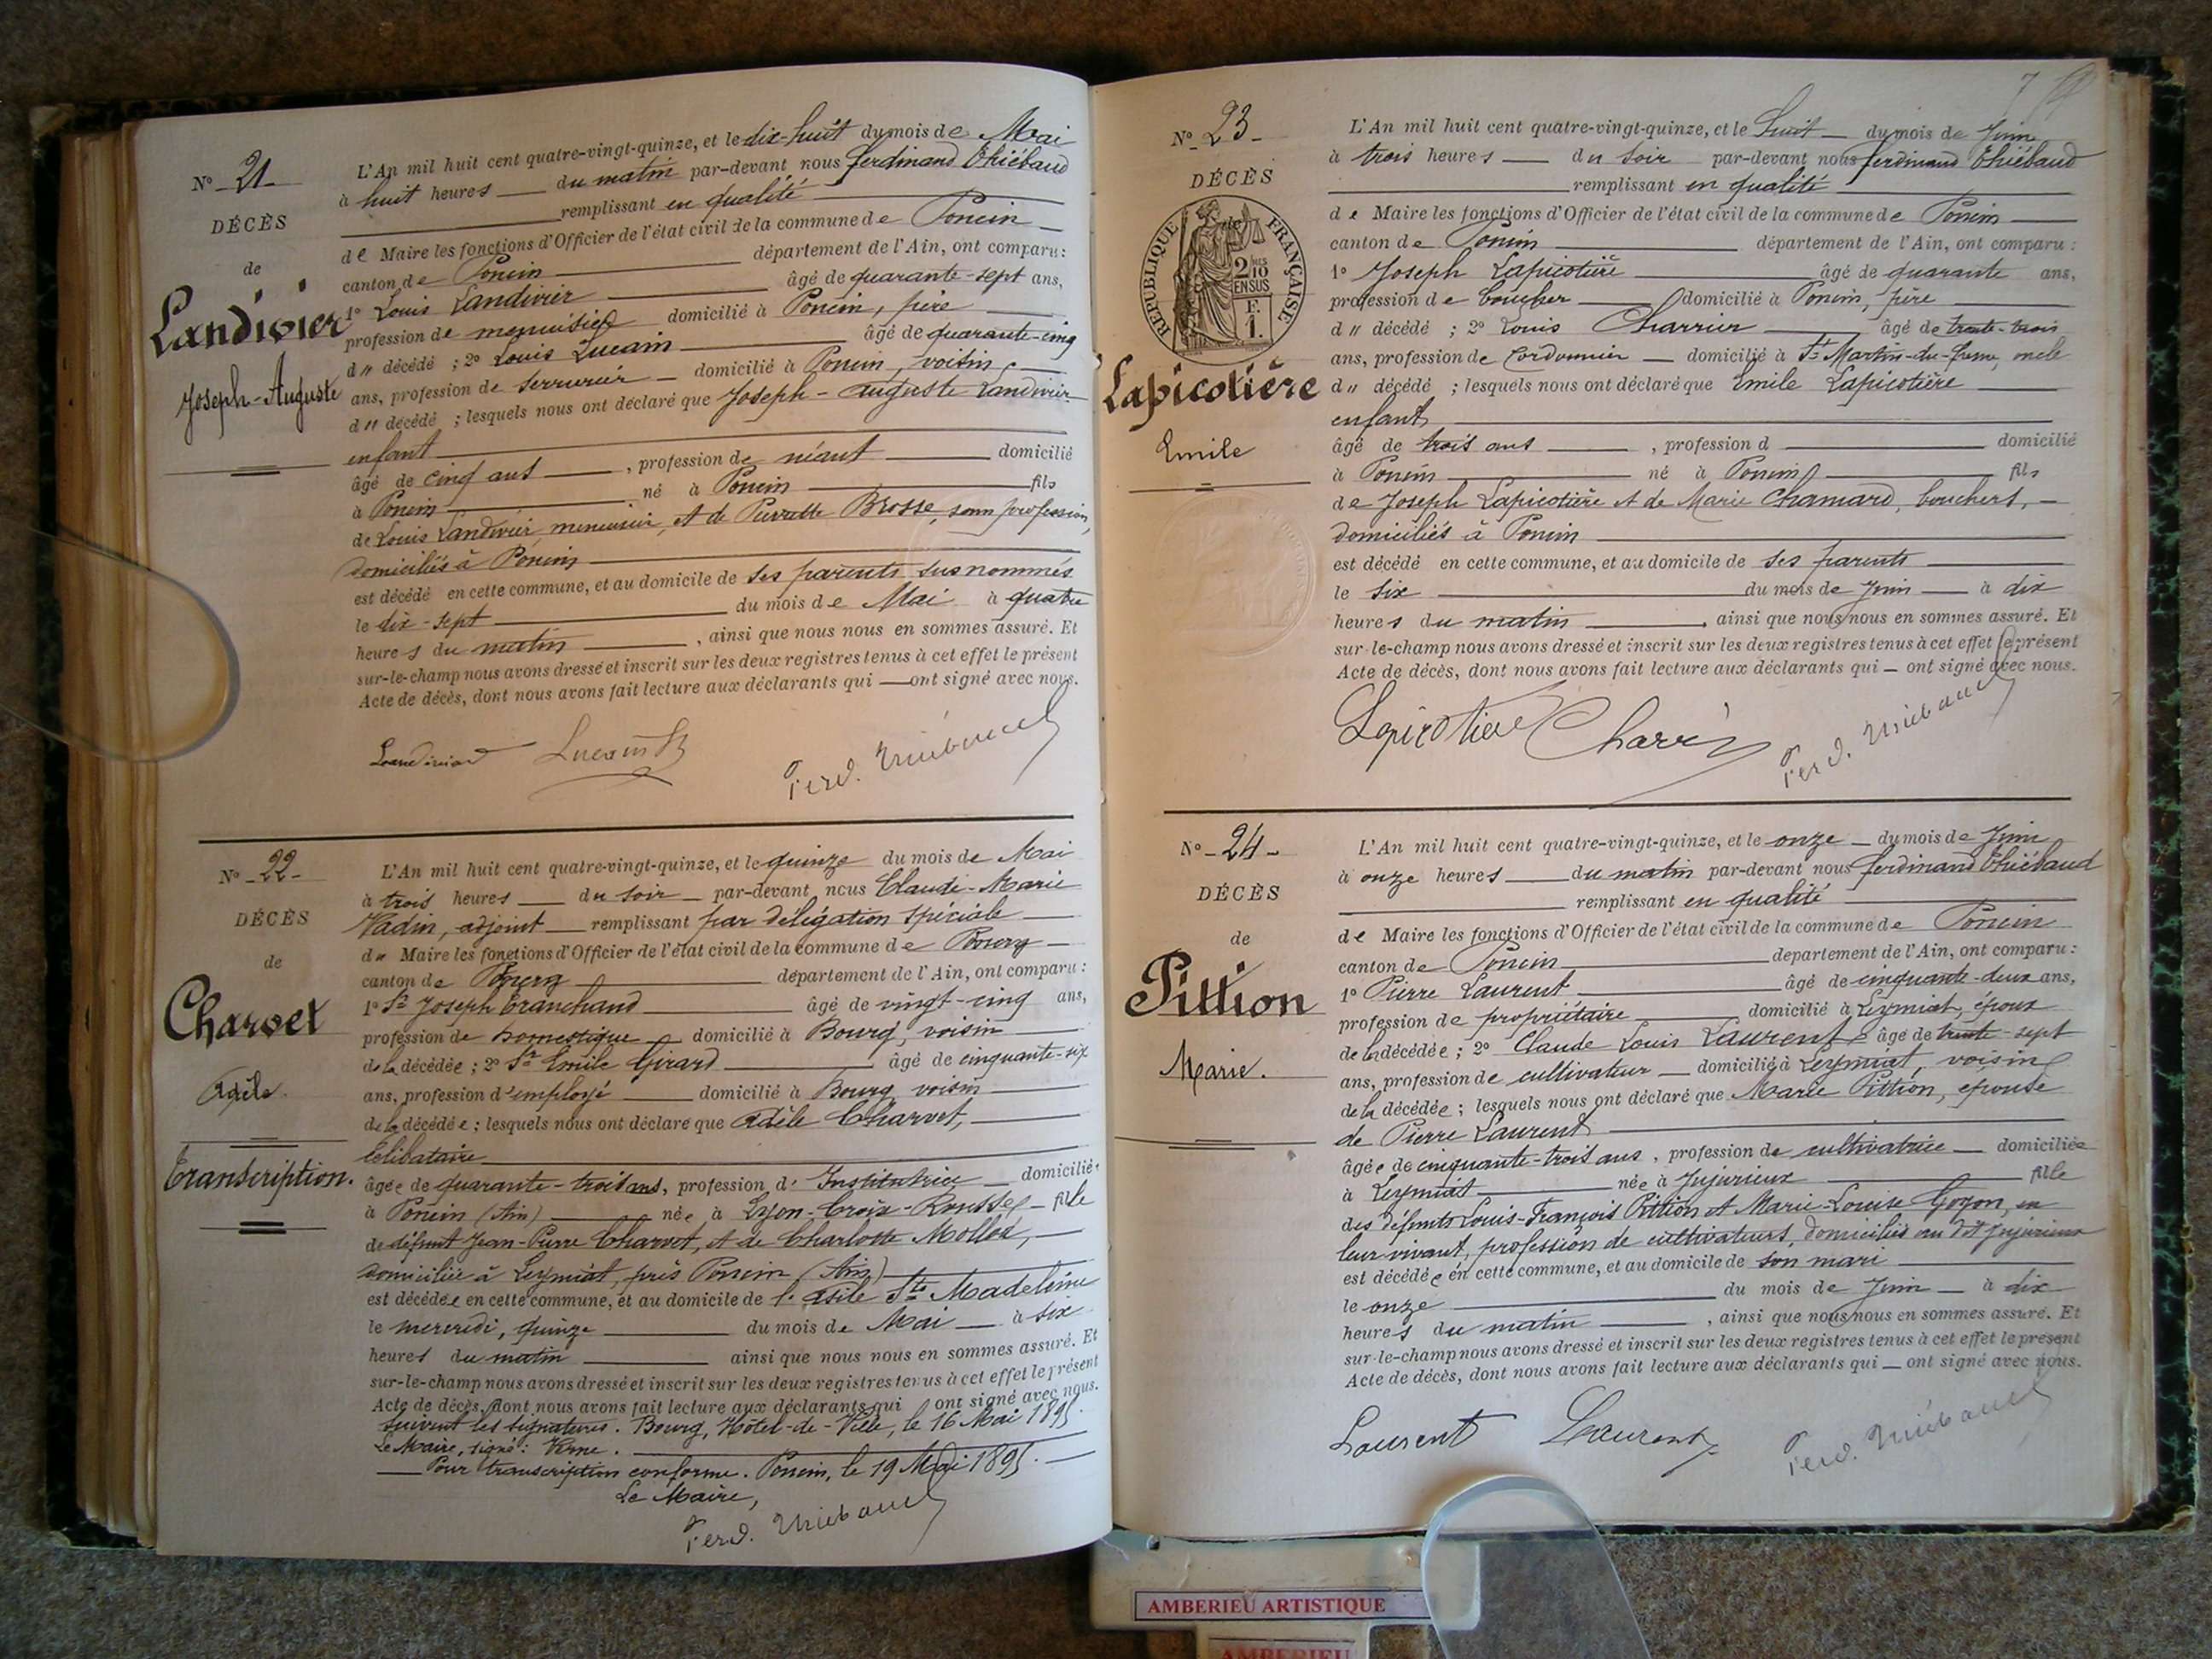 N° 21
DÉCÈS
de
Landivier
Joseph-Auguste
L'An mil huit cent quatre-vingt-quinze, et le dix-huit du mois de Mai
à huit heures du matin par-devant nous Ferdinand Thiébaud
remplissant en qualité
de Maire les fonctions d'Officier de l'état civil de la commune de Poncin
canton de Poncin département de l'Ain, ont comparu:
1° Louis Landivier âgé de quarante-sept ans,
profession de menuisier domicilié à Poncin, père
du décédé ; 2° Louis Lucain âgé de quarante-cinq
ans, profession de serrurier domicilié à Poncin, voisin
du décédé ; lesquels nous ont déclaré que Joseph-Auguste Landivier
enfant
âgé de cinq ans, profession de néant domicilié
à Poncin né à Poncin fils
de Louis Landivier, menuisier, et de Pierrette Brosse, sans profession,
domiciliés à Poncin
est décédé en cette commune, et au domicile de ses parents susnommés
le dix-sept du mois de Mai à quatre
heures du matin, ainsi que nous nous en sommes assuré. Et
sur-le-champ nous avons dressé et inscrit sur les deux registres tenus à cet effet le présent
Acte de décès, dont nous avons fait lecture aux déclarants qui ont signé avec nous.
Ferd. Thiébaud
N° 22
DÉCÈS
de
Charvet
Adèle.
Transcription.
L'An mil huit cent quatre-vingt-quinze, et le quinze du mois de Mai
à trois heures du soir par-devant nous Claude-Marie
Vadin, adjoint remplissant par délégation spéciale
du Maire les fonctions d'Officier de l'état civil de la commune de Bourg
canton de Bourg département de l'Ain, ont comparu:
1° Sr Joseph Tranchand âgé de vingt-cinq ans,
profession de domestique domicilié à Bourg, voisin
de la décédée ; 2° Sr Emile Girard âgé de cinquante-six
ans, profession d'employé domicilié à Bourg, voisin
de la décédée ; lesquels nous ont déclaré que Adèle Charvet,
célibataire
âgée de quarante-trois ans, profession d'Institutrice domiciliée
à Poncin (Ain) née à Lyon-Croix-Rousse fille
de défunt Jean-Pierre Charvet, et de Charlotte
domiciliée à Leymiat, près Poncin (Ain)
est décédée en cette commune, et au domicile de l'asile Ste Madeleine
le mercredi, quinze du mois de Mai à six
heures du matin ainsi que nous nous en sommes assuré. Et
sur-le-champ nous avons dressé et inscrit sur les deux registres tenus à cet effet le présent
Acte de décès, dont nous avons fait lecture aux déclarants qui ont signé avec nous.
Suivent les signatures. Bourg, Hôtel-de-Ville, le 16 Mai 1895.
Le Maire, signé: Verne.
Pour transcription conforme. Poncin, le 19 Mai 1895.
Le Maire,
Ferd. Thiébaud
7
N° 23
DÉCÈS
de
RÉPUBLIQUE FRANÇAISE
2/10 EN SUS
F. 1.
Lapicotière
Emile
L'An mil huit cent quatre-vingt-quinze, et le huit du mois de Juin
à trois heures du soir par-devant nous Ferdinand Thiébaud
remplissant en qualité
de Maire les fonctions d'Officier de l'état civil de la commune de Poncin
canton de Poncin département de l'Ain, ont comparu:
1° Joseph Lapicotière âgé de quarante ans,
profession de boucher domicilié à Poncin, père
du décédé ; 2° Louis Charrier âgé de trente-trois
ans, profession de cordonnier domicilié à St Martin-du-Fresne, oncle
du décédé ; lesquels nous ont déclaré que Emile Lapicotière
enfant
âgé de trois ans, profession d domicilié
à Poncin né à Poncin fils
de Joseph Lapicotière et de Marie Chamard, bouchers,
domiciliés à Poncin
est décédé en cette commune, et au domicile de ses parents
le six du mois de Juin à dix
heures du matin, ainsi que nous nous en sommes assuré. Et
sur-le-champ nous avons dressé et inscrit sur les deux registres tenus à cet effet le présent
Acte de décès, dont nous avons fait lecture aux déclarants qui ont signé avec nous.
Lapicotière Charrier Ferd. Thiébaud
N° 24
DÉCÈS
de
Pittion
Marie.
L'An mil huit cent quatre-vingt-quinze, et le onze du mois de Juin
à onze heures du matin par-devant nous Ferdinand Thiébaud
remplissant en qualité
de Maire les fonctions d'Officier de l'état civil de la commune de Poncin
canton de Poncin département de l'Ain, ont comparu:
1° Pierre Laurent âgé de cinquante-deux ans,
profession de propriétaire domicilié à Leymiat, époux
de la décédée ; 2° Claude Louis Laurent âgé de trente-sept
ans, profession de cultivateur domicilié à Leymiat, voisin
de la décédée ; lesquels nous ont déclaré que Marie Pittion, épouse
de Pierre Laurent
âgée de cinquante-trois ans, profession de cultivatrice domiciliée
à Leymiat née à Jujurieux fille
des défunts Louis-François Pittion et Marie-Louise Goyon, en
leur vivant, profession de cultivateurs, domiciliés au dit Jujurieux
est décédée en cette commune, et au domicile de son mari
le onze du mois de Juin à dix
heures du matin, ainsi que nous nous en sommes assuré. Et
sur-le-champ nous avons dressé et inscrit sur les deux registres tenus à cet effet le présent
Acte de décès, dont nous avons fait lecture aux déclarants qui ont signé avec nous.
Laurent Laurent Ferd. Thiébaud
AMBERIEU ARTISTIQUE
AMBERIEU